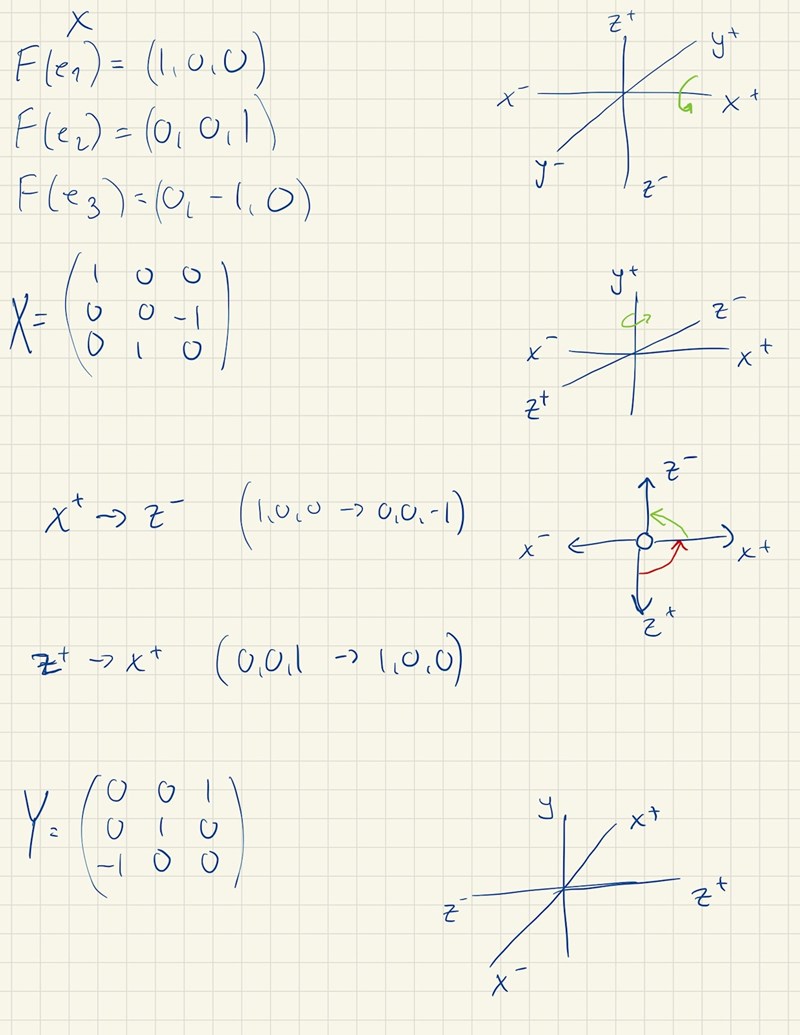 X
F(e₁) = (1, 0, 0)
F(e₂) = (0, 0, 1)
F(e₃) = (0, -1, 0)
z⁺
y⁺
x⁻
x⁺
y⁻
z⁻
X = ( 1 0 0
0 0 -1
0 1 0 )
y⁺
z⁻
x⁻
x⁺
z⁺
x⁺ → z⁻ (1,0,0 → 0,0,-1)
z⁻
x⁻
x⁺
z⁺
z⁺ → x⁺ (0,0,1 → 1,0,0)
Y = ( 0 0 1
0 1 0
-1 0 0 )
y
x⁺
z⁻
z⁺
x⁻